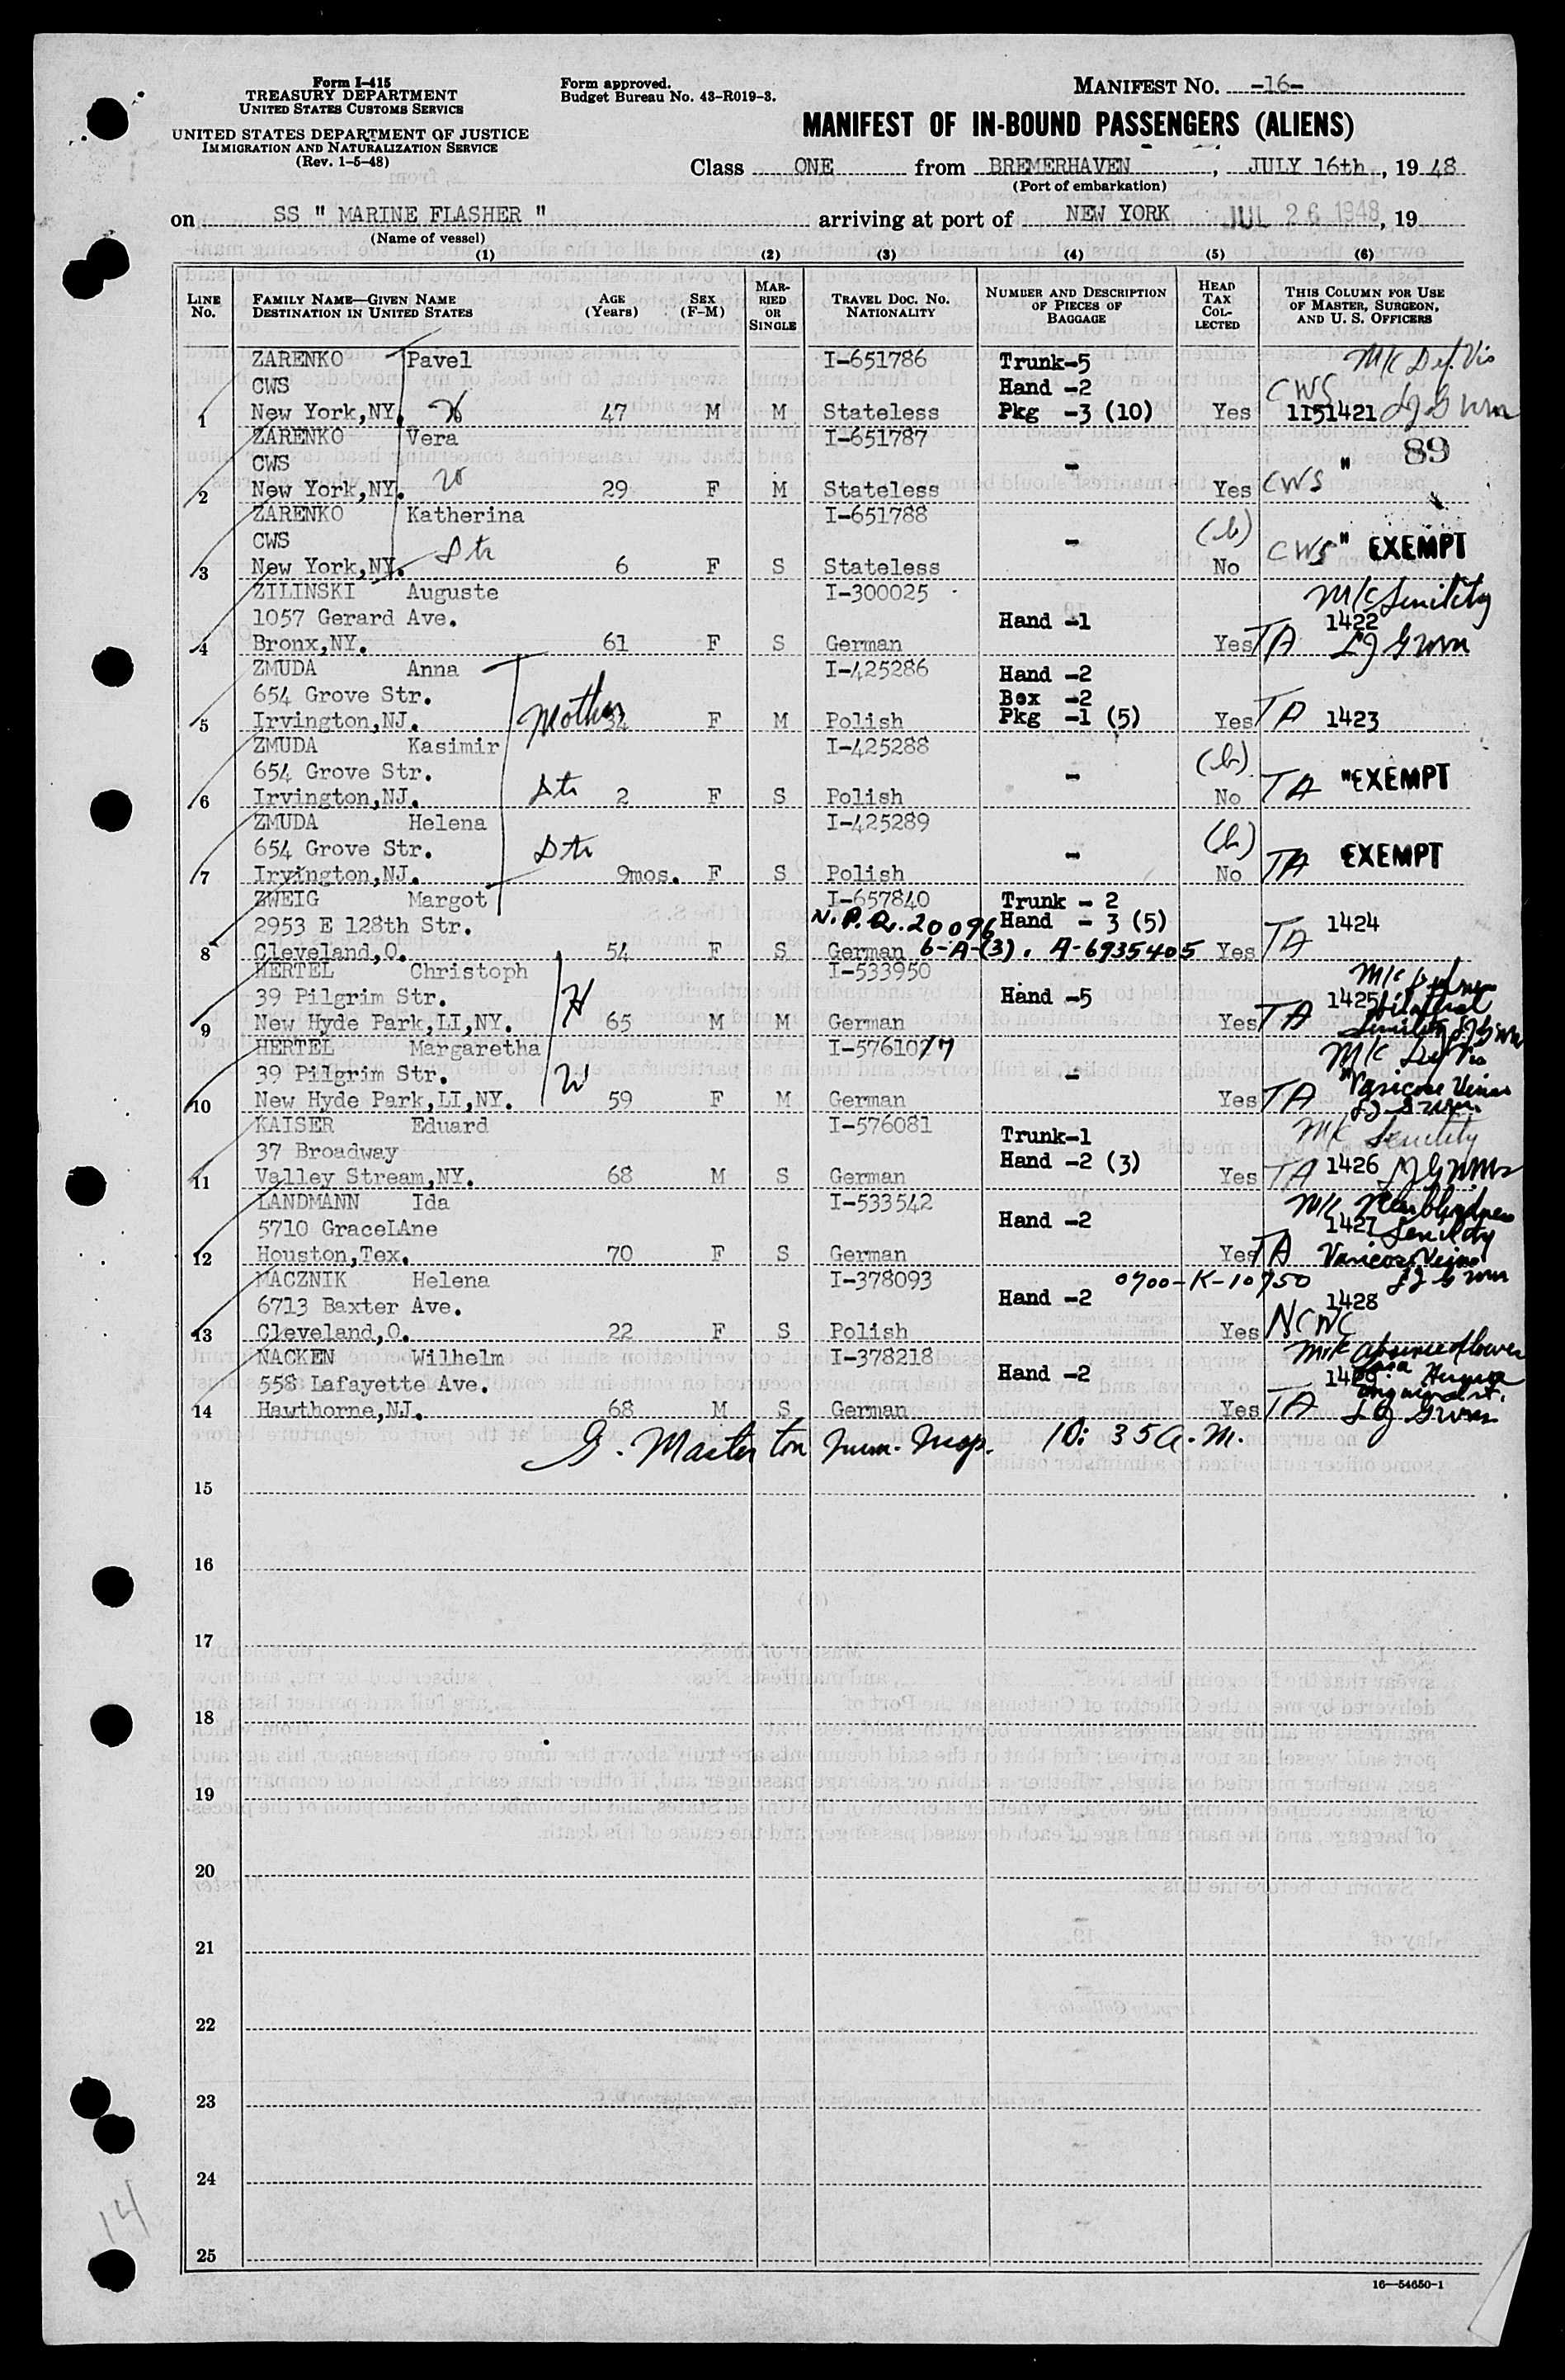 Form I-415
TREASURY DEPARTMENT
UNITED STATES CUSTOMS SERVICE
UNITED STATES DEPARTMENT OF JUSTICE
IMMIGRATION AND NATURALIZATION SERVICE
(Rev. 1-5-48)
Form approved.
Budget Bureau No. 43-R019-3.
MANIFEST NO. -16-
MANIFEST OF IN-BOUND PASSENGERS (ALIENS)
Class ONE from BREMERHAVEN, JULY 16th, 1948
(Port of embarkation)
on SS " MARINE FLASHER " arriving at port of NEW YORK JUL 26 1948, 19
(Name of vessel)
(1) (2) (3) (4) (5) (6)
LINE No. FAMILY NAME—GIVEN NAME DESTINATION IN UNITED STATES AGE (Years) SEX (F-M) MARRIED OR SINGLE TRAVEL DOC. NO. NATIONALITY NUMBER AND DESCRIPTION OF PIECES OF BAGGAGE HEAD TAX COLLECTED THIS COLUMN FOR USE OF MASTER, SURGEON, AND U. S. OFFICERS
ZARENKO Pavel I-651786 Trunk-5 M/C Def. Vis
CWS Hand -2 CWS
1 New York,NY. H 47 M M Stateless Pkg -3 (10) Yes 1151421
ZARENKO Vera I-651787 89
CWS - "
2 New York,NY. W 29 F M Stateless Yes CWS
ZARENKO Katherina I-651788 (b)
CWS Dtr - CWS " EXEMPT
3 New York,NY. 6 F S Stateless No
ZILINSKI Auguste I-300025 M/C Senility
1057 Gerard Ave. Hand -1 1422
4 Bronx,NY. 61 F S German Yes TA
ZMUDA Anna I-425286 Hand -2
654 Grove Str. Mother Box -2
5 Irvington,NJ. 34 F M Polish Pkg -1 (5) Yes TA 1423
ZMUDA Kasimir I-425288 (b)
654 Grove Str. Dtr - TA "EXEMPT
6 Irvington,NJ. 2 F S Polish No
ZMUDA Helena I-425289 (b)
654 Grove Str. Dtr - TA EXEMPT
7 Irvington,NJ. 9mos. F S Polish No
ZWEIG Margot I-657840 Trunk - 2
2953 E 128th Str. N.P.Q. 20096 Hand - 3 (5) 1424
8 Cleveland,O. 54 F S German 6-A-(3). A-6935405 Yes TA
HERTEL Christoph I-533950 M/C
39 Pilgrim Str. H Hand -5 1425 bilateral
9 New Hyde Park,LI,NY. 65 M M German Yes TA Senility
HERTEL Margaretha I-5761017 M/C Def Vis
39 Pilgrim Str. W - " Varicose Veins
10 New Hyde Park,LI,NY. 59 F M German Yes TA
KAISER Eduard I-576081 Trunk-1 M/C Senility
37 Broadway Hand -2 (3) 1426
11 Valley Stream,NY. 68 M S German Yes TA
LANDMANN Ida I-533542 M/C
5710 GraceLAne Hand -2 1427 Senility
12 Houston,Tex. 70 F S German Yes TA Varicose Veins
MACZNIK Helena I-378093 0700-K-10750
6713 Baxter Ave. Hand -2 1428
13 Cleveland,O. 22 F S Polish Yes NCWC
NACKEN Wilhelm I-378218 M/C absence of lower
558 Lafayette Ave. Hand -2 1429 Hernia
14 Hawthorne,NJ. 68 M S German Yes TA
G. Masterton Imm. Insp. 10:35 a.m.
15
16
17
18
19
20
21
22
23
24
25
16—54650-1
14